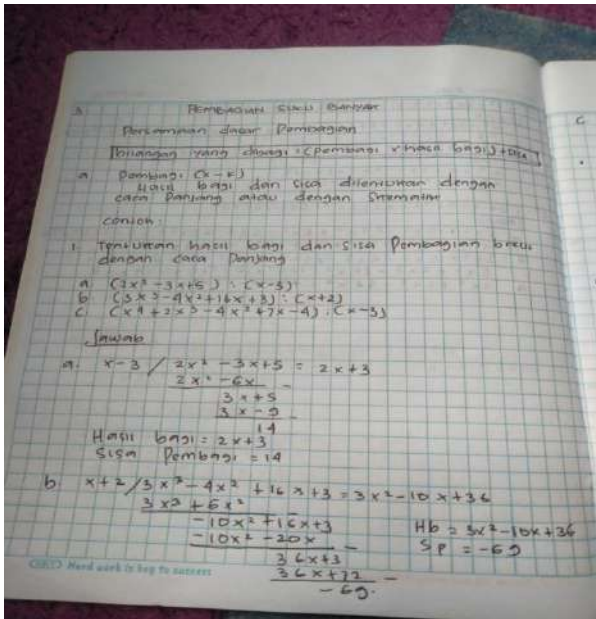 3. PEMBAGIAN SUKU BANYAK
Persamaan dasar Pembagian
Bilangan yang dibagi = (pembagi x hasil bagi) + sisa
a Pembagi (x-k)
Hasil bagi dan sisa ditentukan dengan
cara Panjang atau dengan
contoh:
1. Tentukan hasil bagi dan sisa Pembagian berikut
dengan cara Panjang
a (2x² - 3x + 5) : (x-3)
b (3x³ - 4x² + 16x + 3) : (x+2)
c. (x⁴ + 2x³ - 4x² + 7x - 4) : (x-3)
Jawab
a. x-3 / 2x² - 3x + 5 = 2x + 3
2x² - 6x -
3x + 5
3x - 9 -
14
Hasil bagi = 2x + 3
Sisa Pembagi = 14
b. x+2 / 3x³ - 4x² + 16x + 3 = 3x² - 10x + 36
3x³ + 6x²
-10x² + 16x + 3
-10x² - 20x -
36x + 3
36x + 72 -
-69.
Hb = 3x² - 10x + 36
Sp = -69
Hard work is key to success
C